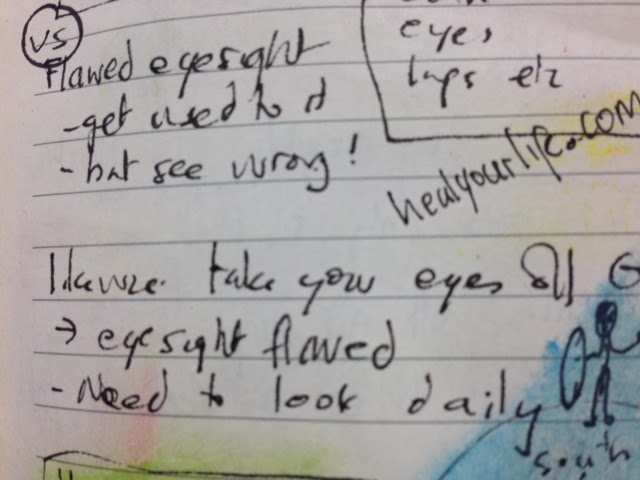 VS
Flawed eyesight
- get used to it
- but see wrong!
eyes,
lips etc
healyourlife.com
Likewise take your eyes off G
→ eyesight flawed
- Need to look daily
south